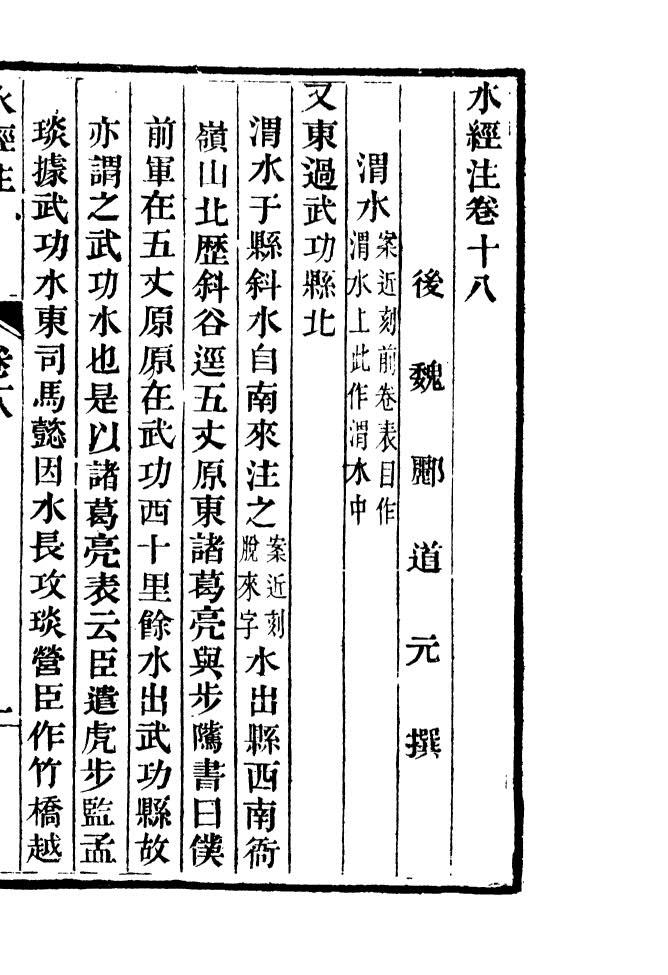 水經注卷十八
後魏酈道元撰
渭水案近刻前卷表目作渭水上此作渭水中
又東過武功縣北
渭水于縣斜水自南來注之案近刻脫來字水出縣西南衙
嶺山北歷斜谷逕五丈原東諸葛亮與步隲書曰僕
前軍在五丈原原在武功西十里餘水出武功縣故
亦謂之武功水也是以諸葛亮表云臣遣虎步監孟
琰據武功水東司馬懿因水長攻琰營臣作竹橋越
水經注
卷十八
一